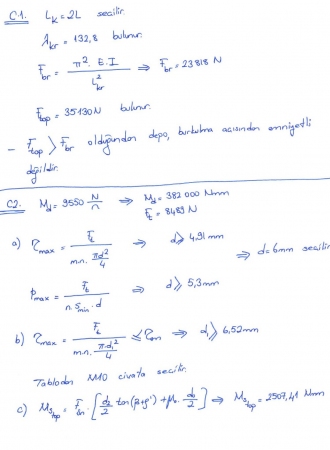 C.1. L_K = 2L seçilir.
λ_kr = 132,8 bulunur.
F_br = π².E.I / L²_kr ⇒ F_br = 23818 N
F_top = 35130N bulunur.
– F_top > F_br olduğundan depo, burkulma açısından emniyetli
değildir.
C2. M_d = 9550 N/n ⇒ M_d = 382 000 Nmm
F_t = 8489 N
a) τ_max = F_t / m.n. πd²/4 ⇒ d ≥ 4,91 mm
⇒ d = 6mm seçilir
P_max = F_t / n.s_min.d ⇒ d ≥ 5,3mm
b) τ_max = F_t / m.n. π.d₁²/4 ≤ τ_em ⇒ d₁ ≥ 6,52mm
Tablodan M10 civata seçilir.
c) M_s_top = F_ön . [ d₂/2 tan(α+ρ') + μ. d₀/2 ] ⇒ M_s_top = 2507,41 Nmm